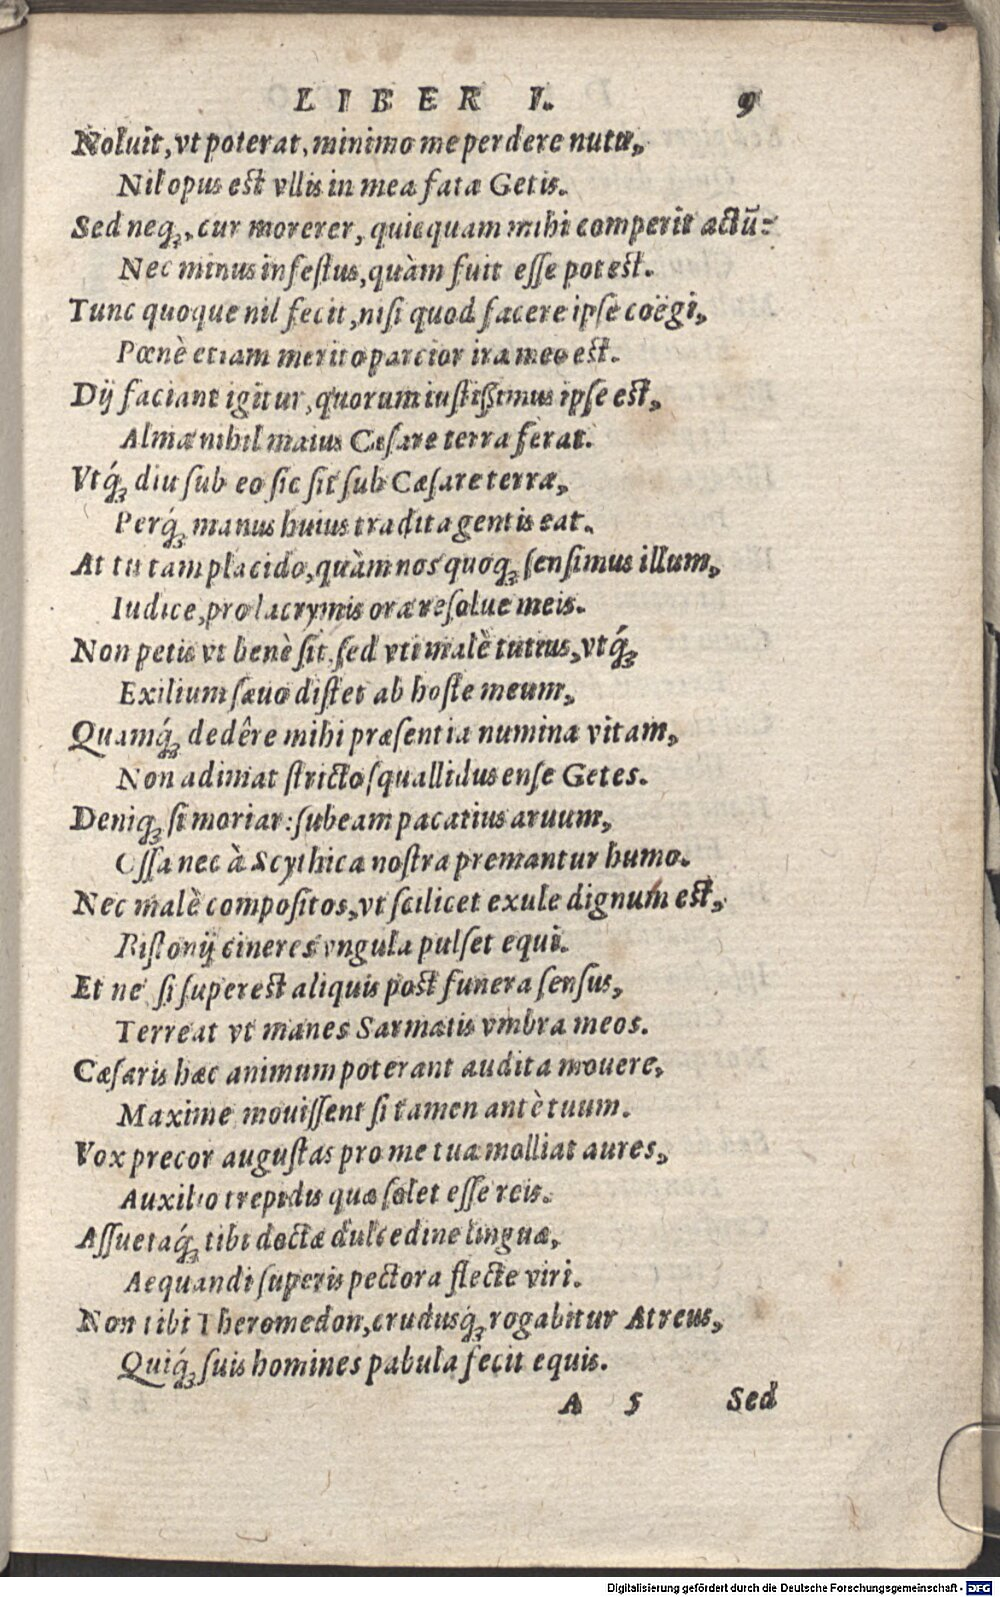 LIBER I. 9
Noluit, vt poterat, minimo me perdere nutu,
Nil opus est vllis in mea fata Getis.
Sed neq;, cur morerer, quicquam mihi comperit actū:
Nec minus infestus, quàm fuit esse potest.
Tunc quoque nil fecit, nisi quod facere ipse coëgi,
Pœnè etiam merito parcior ira meo est.
Dij faciant igitur, quorum iustißimus ipse est,
Almæ nihil maius Cæsare terra ferat.
Vtq́; diu sub eo sic sit sub Cæsare terræ,
Perq́; manus huius tradita gentis eat.
At tu tam placido, quàm nos quoq; sensimus illum,
Iudice, pro lacrymis ora resolue meis.
Non petis vt benè sit, sed vti malè tutius, vtq́;
Exilium sæuo distet ab hoste meum,
Quamq́; dedêre mihi præsentia numina vitam,
Non adimat stricto squallidus ense Getes.
Deniq; si moriar: subeam pacatius aruum,
Ossa nec à Scythica nostra premantur humo.
Nec malè compositos, vt scilicet exule dignum est,
Bistonij cineres vngula pulset equi.
Et ne si superest aliquis post funera sensus,
Terreat vt manes Sarmatis vmbra meos.
Cæsaris hæc animum poterant audita mouere,
Maxime mouissent si tamen antè tuum.
Vox precor augustas pro me tua molliat aures,
Auxilio trepidis quæ solet esse reis.
Assuetaq́; tibi doctæ dulcedine linguæ,
Aequandi superis pectora flecte viri.
Non tibi Theromedon, crudusq́; rogabitur Atreus,
Quiq́; suis homines pabula fecit equis.
A 5 Sed
Digitalisierung gefördert durch die Deutsche Forschungsgemeinschaft - DFG